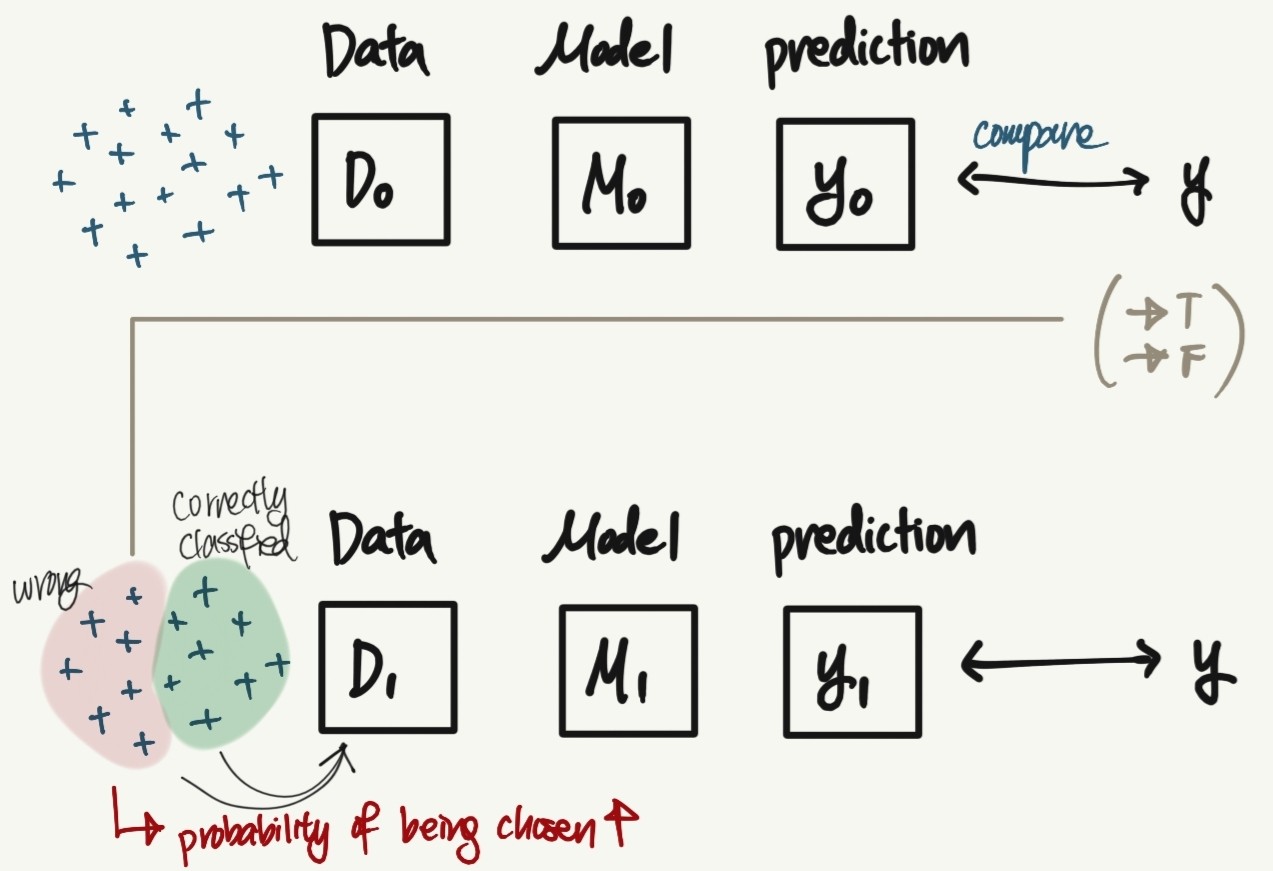 Data Model prediction
D₀ M₀ y₀ compare y
→ T
→ F
correctly
classified
wrong
Data Model prediction
D₁ M₁ y₁ y
probability of being chosen ↑